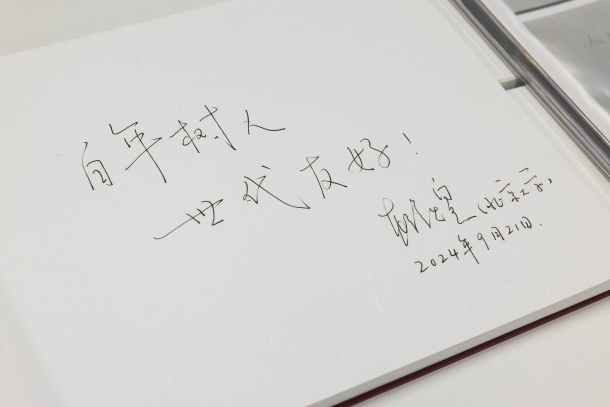 百年树人
世代友好！
2024年9月21日.